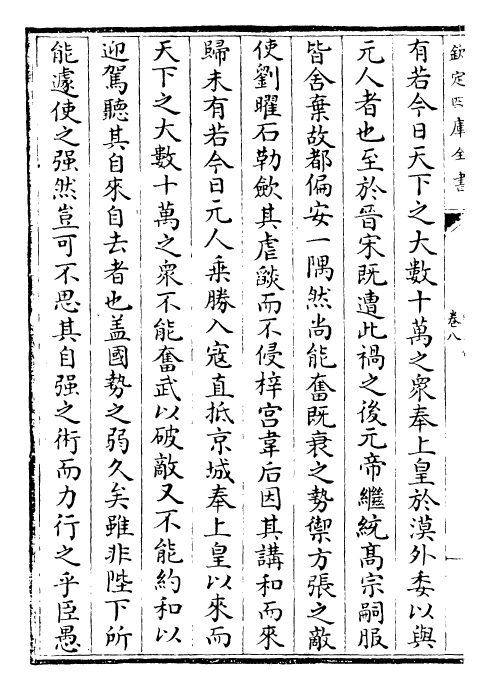 欽定四庫全書
卷八
有若今日天下之大數十萬之衆奉上皇於漠外委以與
元人者也至於晉宋既遭此禍之後元帝繼統髙宗嗣服
皆舍棄故都偏安一隅然尚能奮既衰之勢禦方張之敵
使劉曜石勒歛其虐燄而不侵梓宫韋后因其講和而來
歸未有若今日元人乗勝入寇直抵京城奉上皇以來而
天下之大數十萬之衆不能奮武以破敵又不能約和以
迎駕聽其自來自去者也盖國勢之弱久矣雖非陛下所
能遽使之强然豈可不思其自强之術而力行之乎臣愚